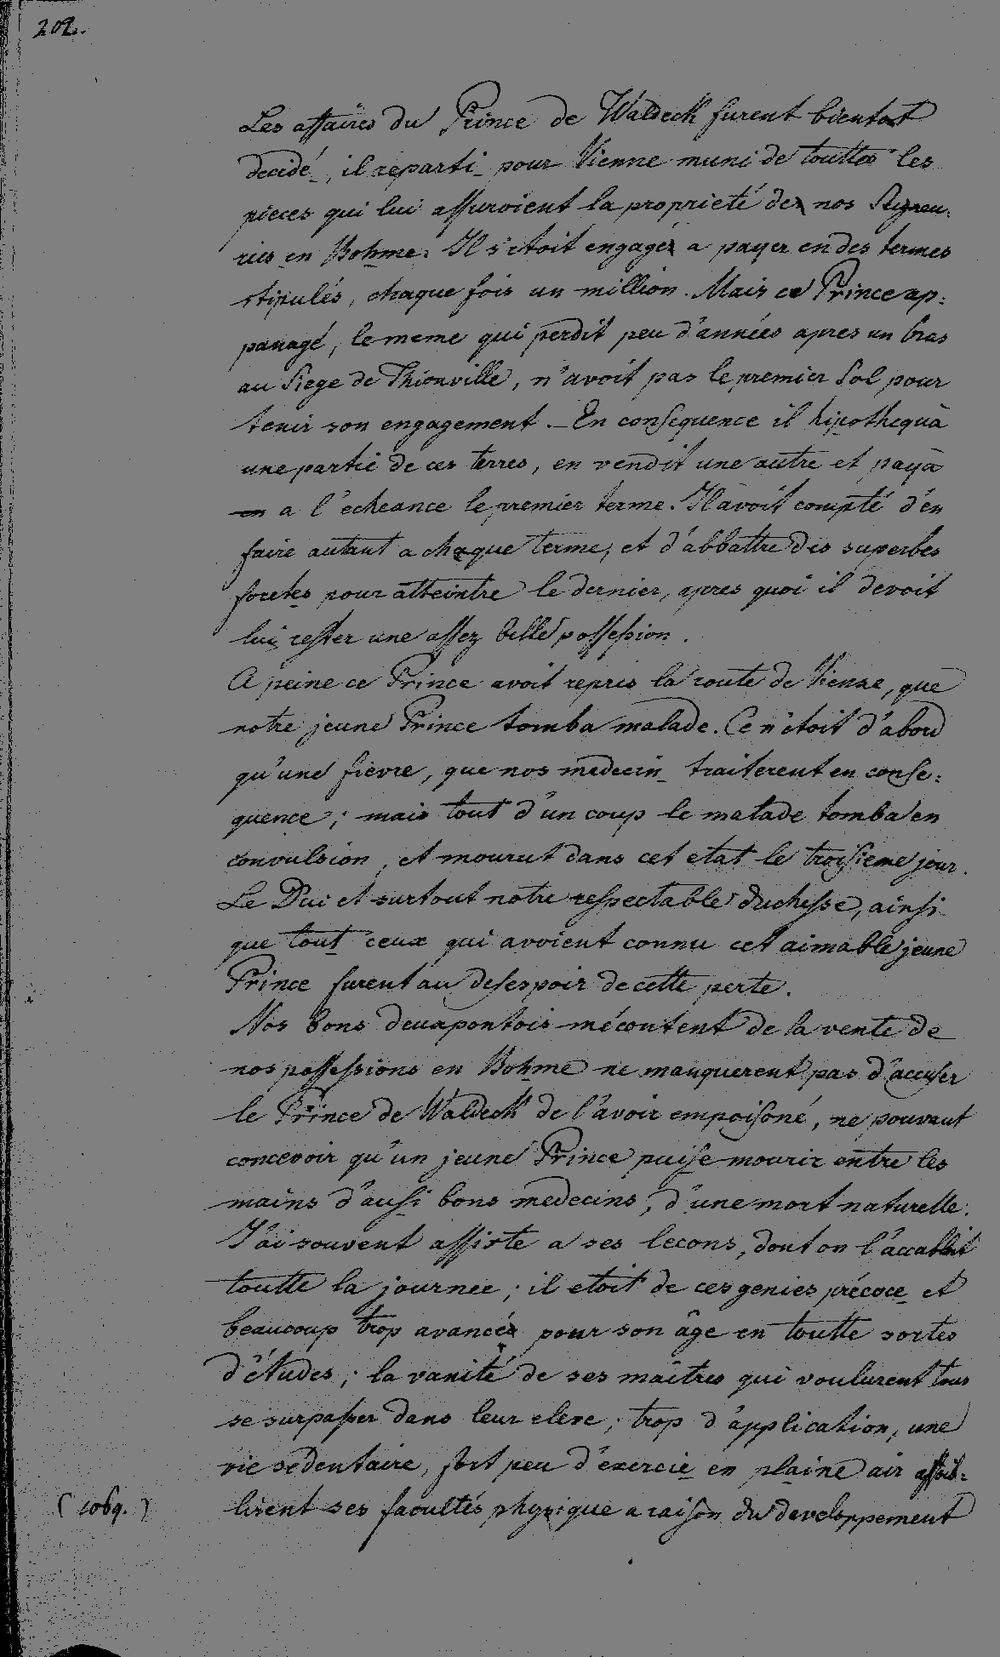 202.
Les affaires du Prince de Waldeck furent bientot
decidé, il reparti pour Vienne muni de touttes les
pieces qui lui assuroient la proprieté de nos Seigneu:
ries en Bohme. Il s'etoit engagé a payer en des termes
stipulés, chaque fois un million. Mais ce Prince ap:
panagé, le meme qui perdit peu d'années apres un bras
au Siege de Thionville, n'avoit pas le premier Sol pour
tenir son engagement. – En consequence il hipothequà
une partie de ces terres, en vendit une autre et payà
a l'echeance le premier terme. Il avoit compté d'en
faire autant a chaque terme, et d'abbattre des superbes
foretes pour atteintre le dernier, apres quoi il devoit
lui rester une assez belle possession.
A peine ce Prince avoit repris la route de Vienne, que
notre jeune Prince tomba malade. Ce n'étoit d'abord
qu'une fievre, que nos medecin traiterent en conse:
quence; mais tout d'un coup le malade tomba en
convulsion, et mourut dans cet etat le troisieme jour.
Le Duc et surtout notre respectable duchesse, ainsi
que tout ceux qui avoient connu cet aimable jeune
Prince furent au desespoir de cette perte.
Nos bons deuxpontois mécontent de la vente de
nos possessions en Bohme ne manquerent pas d'accuser
le Prince de Waldeck de l'avoir empoisoné, ne pouvant
concevoir qu'un jeune Prince puise mourir entre les
mains d'aussi bons medecins, d'une mort naturelle.
J'ai souvent assisté a ses lecons, dont on l'accabloit
toutte la journee; il etoit de ces genies précoce et
beaucoup trop avancé pour son âge en toutte sortes
d'études; la vanité de ses maitres qui voulurent tous
se surpasser dans leur eleve, trop d'application, une
vie sedentaire, fort peu d'exercie en plaine air affoib:
lirent ses facultés physique a raison du developpement
( 1069. )